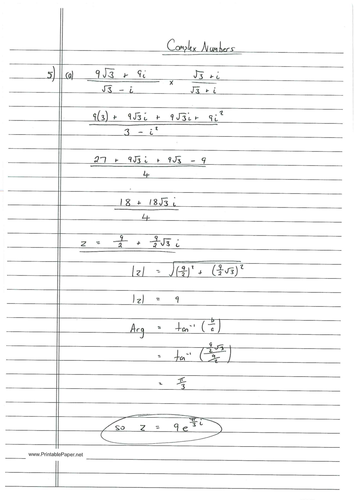 Complex Numbers
5) (a) 9√3 + 9i / √3 - i × √3 + i / √3 + i
9(3) + 9√3 i + 9√3 i + 9i² / 3 - i²
27 + 9√3 i + 9√3 - 9 / 4
18 + 18√3 i / 4
z = 9/2 + 9/2 √3 i
|z| = √((9/2)² + (9/2 √3)²)
|z| = 9
Arg = tan⁻¹ (b/a)
= tan⁻¹ (9/2 √3 / 9/2)
= π/3
so z = 9 e^(π/3 i)
www.PrintablePaper.net